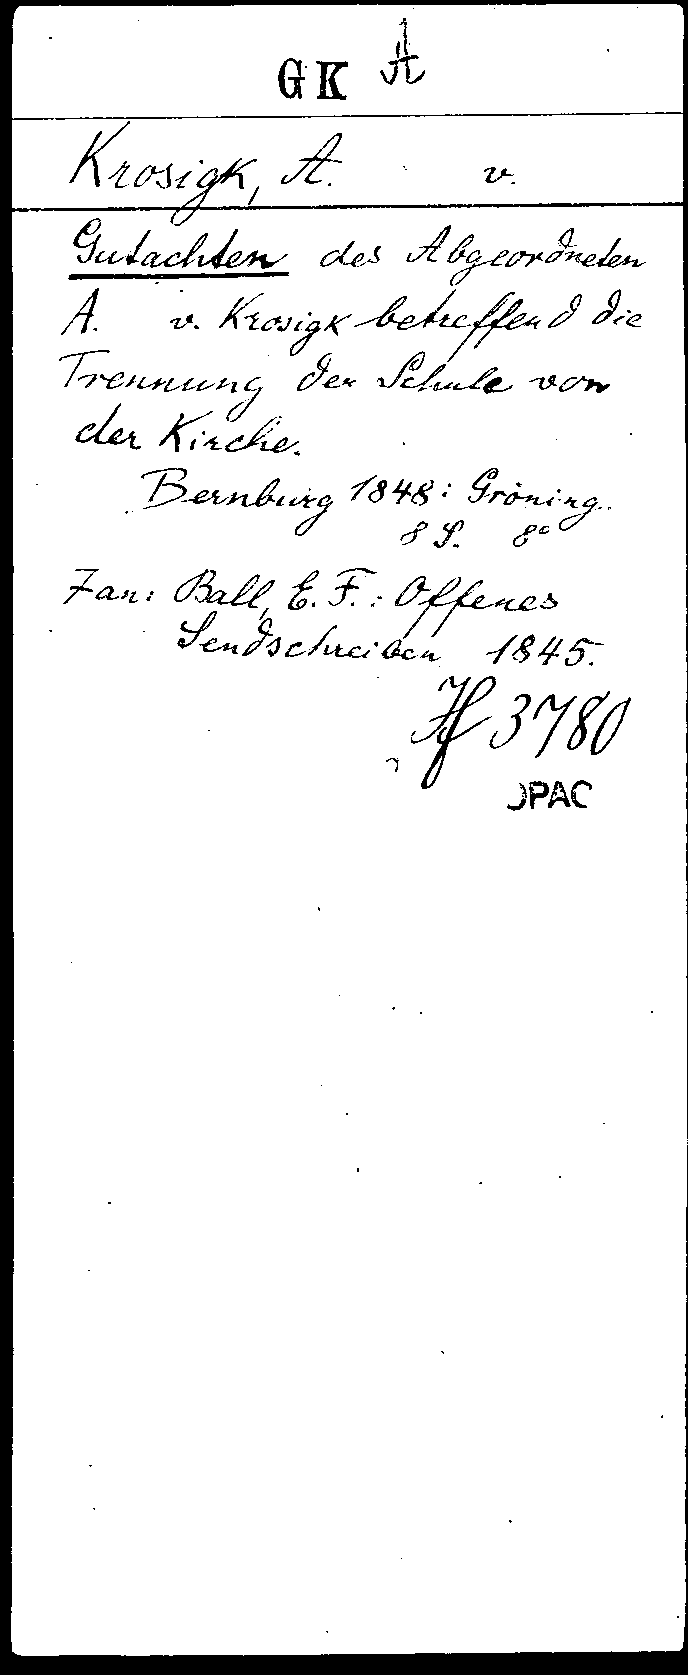 GK A
Krosigk, A. v.
Gutachten des Abgeordneten
A. v. Krosigk betreffend die
Trennung der Schule von
der Kirche.
Bernburg 1848: Gröning.
8 S. 8°
an: Ball, E. F.: Offenes
Sendschreiben 1845.
3780
OPAC